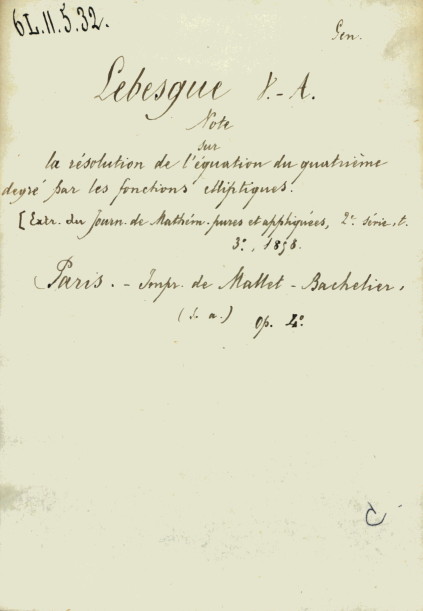 6L.11.5.32.
Gen.
Lebesgue V.-A.
Note
sur
la résolution de l'équation du quatrième
degré par les fonctions elliptiques.
[Extr. du Journ. de Mathém. pures et appliquées, 2e série, t.
3e, 1858.
Paris. - Impr. de Mallet - Bachelier,
(s. a.) Op. 4o.
C